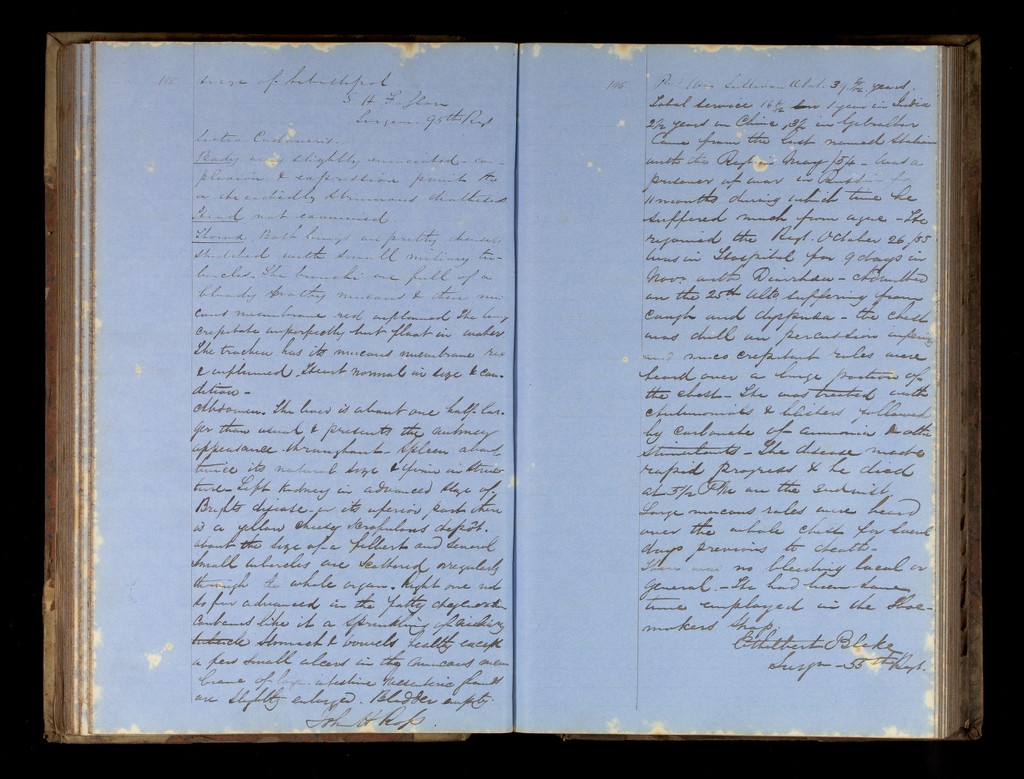 115
siege of Sebastopol
Surgeon 95th Regt
Sectio Cadaveris.
Body very slightly emaciated - com-
plexion & expression points to
a decidedly strumous diathesis
Head not examined.
Thorax, Both lungs are pretty densely
studded with small miliary tu-
bercles. The bronchi are full of a
bloody frothy mucous & their mu-
cous membrane red inflamed The lung
crepitate imperfectly but float in water
The trachea has its mucous membrane red
& inflamed. Heart normal in size & con-
dition -
Abdomen. The liver is about one half lar-
ger than usual & presents the nutmeg
appearance throughout - Spleen about
twice its natural size & firm in struc-
ture - Left Kidney in advanced stage of
Brights disease - in its part there
is a yellow cheesy scrofulous deposit.
about the size of a filbert and several
small tubercles are scattered irregularly
through the whole organ. Right one not
so far advanced in the fatty degen
contains like it a sprinkling of
tubercle Stomach & bowels healthy except
a few small ulcers in the mucous mem
brane of large intestine Mesenteric glands
are slightly enlarged. Bladder empty.
John H Ross.
116
Sullivan Aetat. 37 years.
Total service 16 1 year in India
2½ years in China, 3 in Gibraltar
Came from the last named station
with the Regt in May /54 - was a
prisoner of war in Russia for
11 months during which time he
suffered much from ague - He
rejoined the Regt. October 26, /55
was in Hospital for 9 days in
Nov. with Diarrhoea - admitted
on the 25th ulto suffering from
cough and dyspnoea - the chest
was dull on percussion
and muco crepitant rales were
heard over a large portion of
the chest - He was treated with
Antimonials & blisters followed
by carbonate of ammonia & other
Stimulants - The disease made
rapid progress & he died
at 5½ PM on the 2nd inst
Large mucous rales were heard
over the whole chest for several
days previous to death -
There was no bleeding local or
general. - He had been some
time employed in the Shoe-
makers Shop.
Ethelbert Blake
Surgn - 55th Regt.